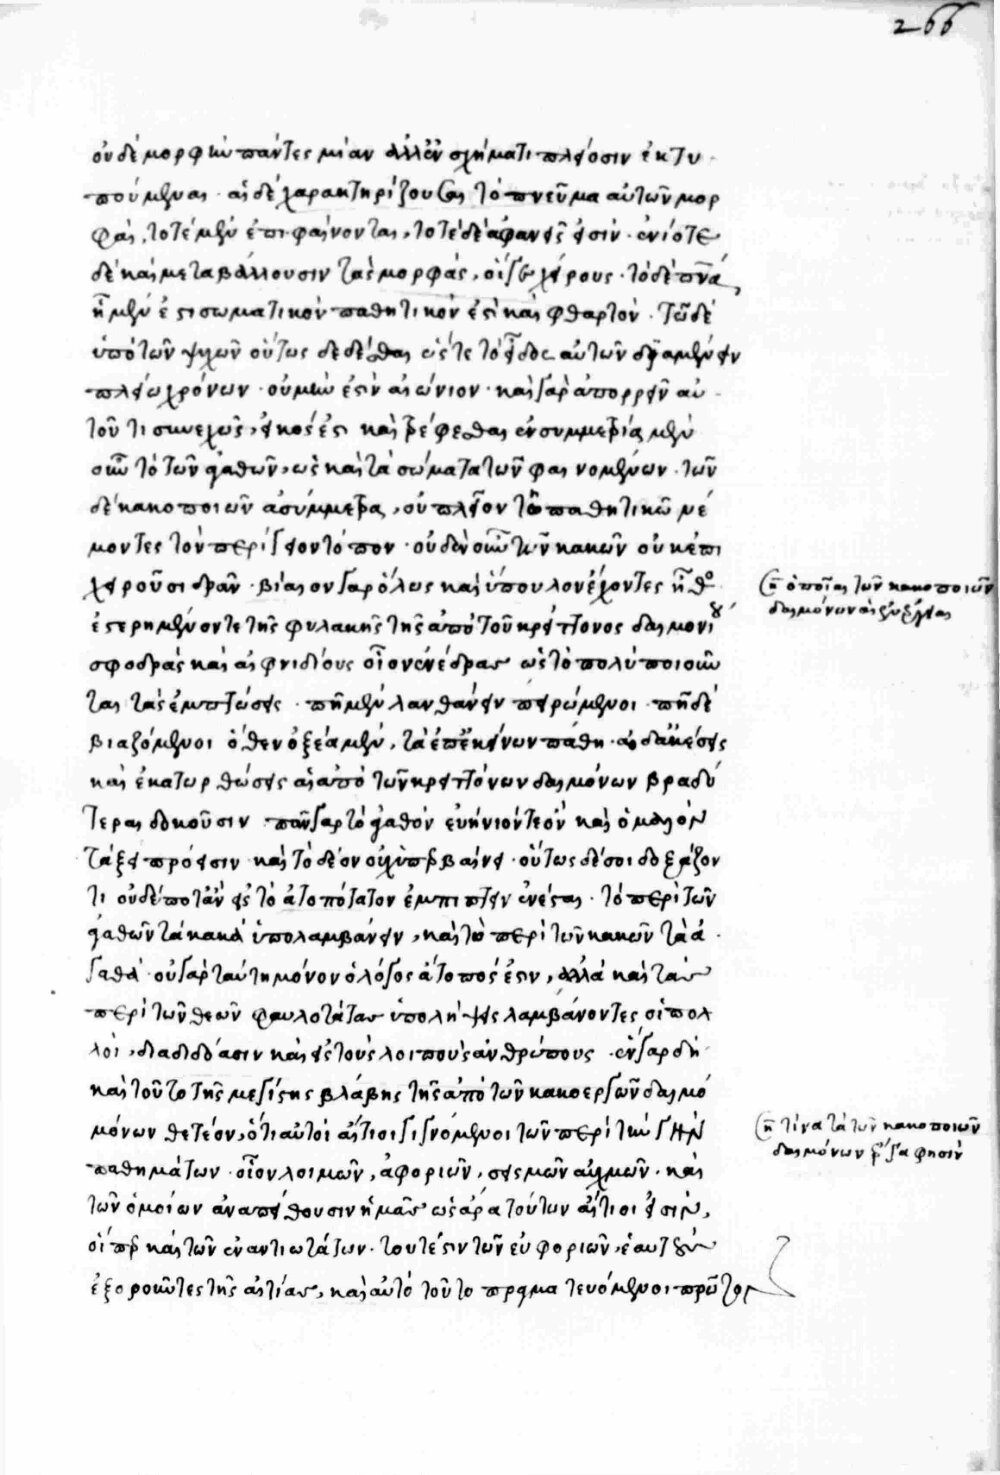 266
οὐδὲ μορφὴν πάντες μίαν ἀλλ' ἐν σχήμασι πλείοσιν ἐκτυ
πούμεναι· αἱ δὲ χαρακτηρίζουσαι τὸ πνεῦμα αὐτῶν μορ
φαὶ, τοτὲ μὲν ἐπιφαίνονται, τοτὲ δὲ ἀφανεῖς εἰσίν· ἐνίοτε
δὲ καὶ μεταβάλλουσιν τὰς μορφάς, οἵ γε χείρους· τὸ δὲ πνα
ᾗ μέν ἐστι σωματικὸν παθητικόν ἐστι καὶ φθαρτόν· τῷ δὲ
ὑπὸ τῶν ψυχῶν οὕτως δεδέσθαι ὥστε τὸ εἶδος αὐτῶν διαμένειν
πλείω χρόνον· οὐ μήν ἐστιν αἰώνιον· καὶ γὰρ ἀπορρεῖν αὐ
τοῦ τι συνεχῶς, εἰκός ἐστι καὶ τρέφεσθαι ἐν συμμετρίᾳ μὲν
οὖν τὸ τῶν ἀγαθῶν, ὡς καὶ τὰ σώματα τῶν φαινομένων· τῶν
δὲ κακοποιῶν ἀσύμμετρα, οἳ πλεῖον τῷ παθητικῷ νέ
μοντες τὸν περίγειον τόπον· οὐδὲν οὖν τῶν κακῶν οὐκ ἐπι
χειροῦσι δρᾶν· βίαιον γὰρ ὅλως καὶ ὕπουλον ἔχοντες ἦθος
ἐστερημένον τε τῆς φυλακῆς τῆς ἀπὸ τοῦ κρείττονος δαιμονίου
σφοδρὰς καὶ αἰφνιδίους οἷον ἐνέδρας ὡς τὸ πολὺ ποιοῦν
ται τὰς ἐμπτώσεις· πῆ μὲν λανθάνειν πειρώμενοι· πῆ δὲ
βιαζόμενοι ὅθεν ὀξέα μὲν, τὰ ἐπ' ἐκείνων πάθη· αἱ δὲ ἀκέσεις
καὶ αἱ κατορθώσεις αἱ ἀπὸ τῶν κρειττόνων δαιμόνων βραδύ
τεραι δοκοῦσιν πᾶν γὰρ τὸ ἀγαθὸν εὐήνιόν τε ὂν καὶ ὁμαλὸν
τάξει πρόεισιν καὶ τὸ δέον οὐχ ὑπερβαίνει· οὕτως δέ σοι δοξάζον
τι οὐδέποτ' ἂν εἰς τὸ ἀτοπώτατον ἐμπίπτειν ἐνέσται· τὸ περὶ τῶν
ἀγαθῶν τὰ κακὰ ὑπολαμβάνειν, καὶ τὸ περὶ τῶν κακῶν τὰ ἀ
γαθά· οὐ γὰρ ταύτῃ μόνον ὁ λόγος ἄτοπός ἐστιν, ἀλλὰ καὶ τὰς
περὶ τῶν θεῶν φαυλοτάτας ὑπολήψεις λαμβάνοντες οἱ πολ
λοὶ, διαδιδόασιν καὶ εἰς τοὺς λοιποὺς ἀνθρώπους· ἓν γὰρ δὴ
καὶ τοῦτο τῆς μεγίστης βλάβης τῆς ἀπὸ τῶν κακοεργῶν δαιμό
μόνων θετέον, ὅτι αὐτοὶ αἴτιοι γιγνόμενοι τῶν περὶ τὴν γῆν
παθημάτων· οἷον λοιμῶν, ἀφοριῶν, σεισμῶν αὐχμῶν· καὶ
τῶν ὁμοίων ἀναπείθουσιν ἡμᾶς ὡς ἄρα τούτων αἴτιοι εἰσὶν,
οἵπερ καὶ τῶν ἐναντιωτάτων· τουτέστιν τῶν εὐφοριῶν, ἑαυτοὺς
ἐξοροῦντες τῆς αἰτίας, καὶ αὐτὸ τοῦτο πραγματευόμενοι πρῶτον
ὁποῖαι τῶν κακοποιῶν
δαιμόνων αἱ ἐνέργειαι
τίνα τὰ τῶν κακοποιῶν
δαιμόνων ἔργα φησίν